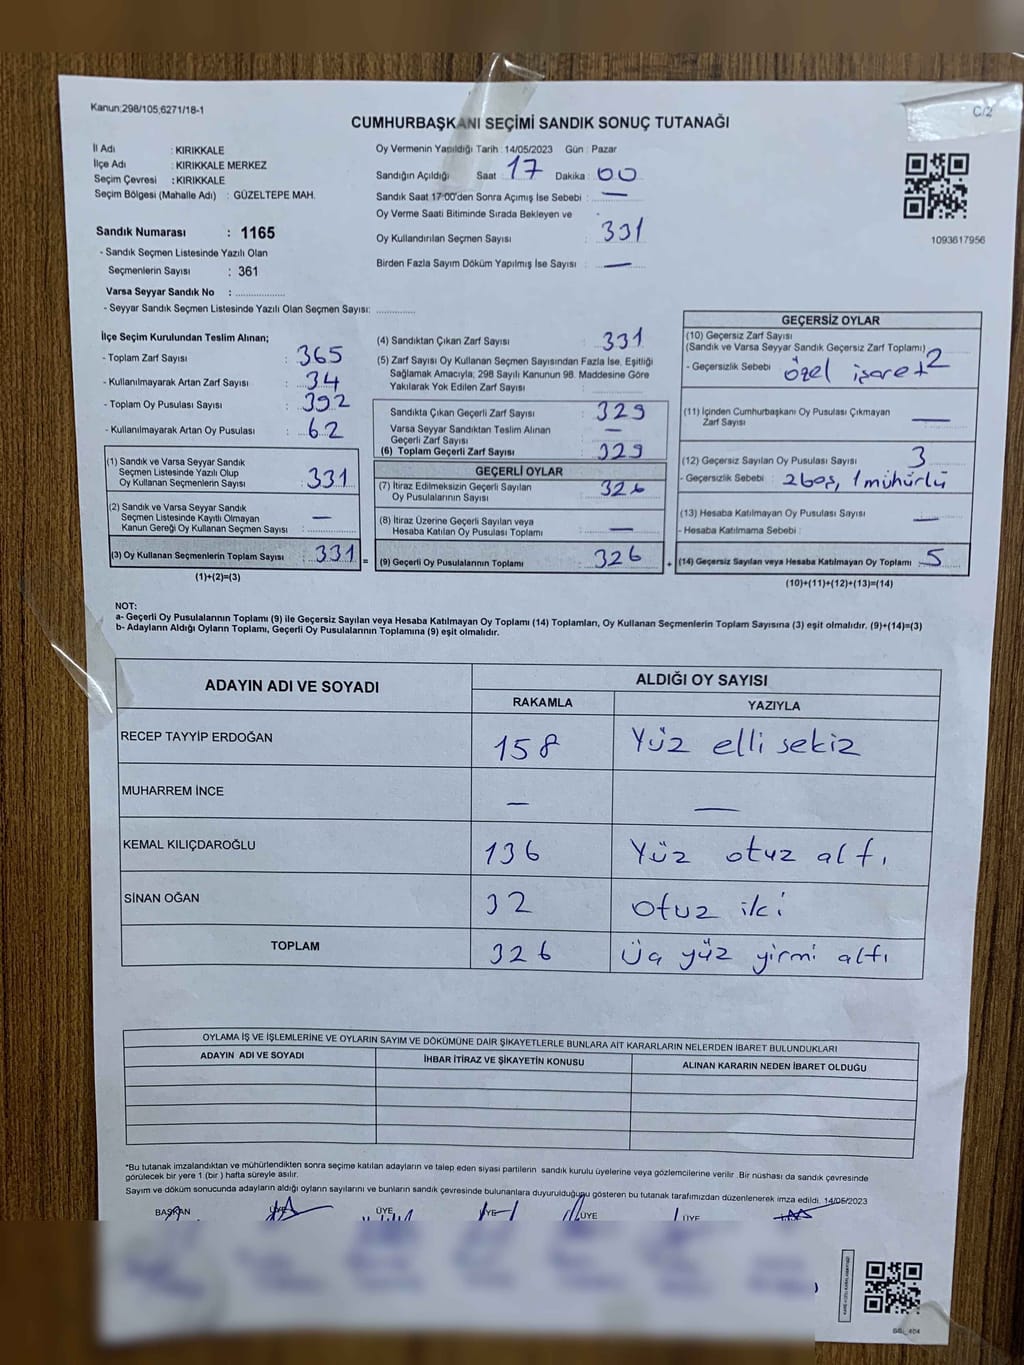 Kanun:298/105,6271/18-1
C/2
CUMHURBAŞKANI SEÇİMİ SANDIK SONUÇ TUTANAĞI
İl Adı : KIRIKKALE
İlçe Adı : KIRIKKALE MERKEZ
Seçim Çevresi : KIRIKKALE
Seçim Bölgesi (Mahalle Adı) : GÜZELTEPE MAH.
Oy Vermenin Yapıldığı Tarih : 14/05/2023 Gün : Pazar
Sandığın Açıldığı Saat : 17 Dakika : 00
Sandık Saat 17:00'den Sonra Açımış İse Sebebi : —
Oy Verme Saati Bitiminde Sırada Bekleyen ve
Oy Kullandırılan Seçmen Sayısı : 331
Birden Fazla Sayım Döküm Yapılmış İse Sayısı : —
1093617956
Sandık Numarası : 1165
- Sandık Seçmen Listesinde Yazılı Olan
Seçmenlerin Sayısı : 361
Varsa Seyyar Sandık No : ..............
- Seyyar Sandık Seçmen Listesinde Yazılı Olan Seçmen Sayısı: ............
İlçe Seçim Kurulundan Teslim Alınan;
- Toplam Zarf Sayısı : 365
- Kullanılmayarak Artan Zarf Sayısı : 34
- Toplam Oy Pusulası Sayısı : 392
- Kullanılmayarak Artan Oy Pusulası : 62
(1) Sandık ve Varsa Seyyar Sandık
Seçmen Listesinde Yazılı Olup
Oy Kullanan Seçmenlerin Sayısı : 331
(2) Sandık ve Varsa Seyyar Sandık
Seçmen Listesinde Kayıtlı Olmayan
Kanun Gereği Oy Kullanan Seçmen Sayısı : —
(3) Oy Kullanan Seçmenlerin Toplam Sayısı : 331 =
(1)+(2)=(3)
(4) Sandıktan Çıkan Zarf Sayısı : 331
(5) Zarf Sayısı Oy Kullanan Seçmen Sayısından Fazla İse, Eşitliği
Sağlamak Amacıyla; 298 Sayılı Kanunun 98. Maddesine Göre
Yakılarak Yok Edilen Zarf Sayısı :
Sandıkta Çıkan Geçerli Zarf Sayısı : 329
Varsa Seyyar Sandıktan Teslim Alınan
Geçerli Zarf Sayısı : —
(6) Toplam Geçerli Zarf Sayısı : 329
GEÇERLİ OYLAR
(7) İtiraz Edilmeksizin Geçerli Sayılan
Oy Pusulalarının Sayısı : 326
(8) İtiraz Üzerine Geçerli Sayılan veya
Hesaba Katılan Oy Pusulası Toplamı : —
(9) Geçerli Oy Pusulalarının Toplamı : 326 +
GEÇERSİZ OYLAR
(10) Geçersiz Zarf Sayısı
(Sandık ve Varsa Seyyar Sandık Geçersiz Zarf Toplamı) : 2
- Geçersizlik Sebebi : özel işaret
(11) İçinden Cumhurbaşkanı Oy Pusulası Çıkmayan
Zarf Sayısı —
(12) Geçersiz Sayılan Oy Pusulası Sayısı : 3
- Geçersizlik Sebebi : 2 boş, 1 mühürlü
(13) Hesaba Katılmayan Oy Pusulası Sayısı : —
- Hesaba Katılmama Sebebi :
(14) Geçersiz Sayılan veya Hesaba Katılmayan Oy Toplamı : 5
(10)+(11)+(12)+(13)=(14)
NOT:
a- Geçerli Oy Pusulalarının Toplamı (9) ile Geçersiz Sayılan veya Hesaba Katılmayan Oy Toplamı (14) Toplamları, Oy Kullanan Seçmenlerin Toplam Sayısına (3) eşit olmalıdır. (9)+(14)=(3)
b- Adayların Aldığı Oyların Toplamı, Geçerli Oy Pusulalarının Toplamına (9) eşit olmalıdır.
ADAYIN ADI VE SOYADI ALDIĞI OY SAYISI
RAKAMLA YAZIYLA
RECEP TAYYİP ERDOĞAN 158 Yüz elli sekiz
MUHARREM İNCE — —
KEMAL KILIÇDAROĞLU 136 Yüz otuz altı
SİNAN OĞAN 32 otuz iki
TOPLAM 326 Üç yüz yirmi altı
OYLAMA İŞ VE İŞLEMLERİNE VE OYLARIN SAYIM VE DÖKÜMÜNE DAİR ŞİKAYETLERLE BUNLARA AİT KARARLARIN NELERDEN İBARET BULUNDUKLARI
ADAYIN ADI VE SOYADI İHBAR İTİRAZ VE ŞİKAYETİN KONUSU ALINAN KARARIN NEDEN İBARET OLDUĞU
*Bu tutanak imzalandıktan ve mühürlendikten sonra seçime katılan adayların ve talep eden siyasi partilerin sandık kurulu üyelerine veya gözlemcilerine verilir. Bir nüshası da sandık çevresinde
görülecek bir yere 1 (bir ) hafta süreyle asılır.
Sayım ve döküm sonucunda adayların aldığı oyların sayılarını ve bunların sandık çevresinde bulunanlara duyurulduğunu gösteren bu tutanak tarafımızdan düzenlenerek imza edildi. 14/05/2023
BAŞKAN ÜYE ÜYE ÜYE ÜYE ÜYE